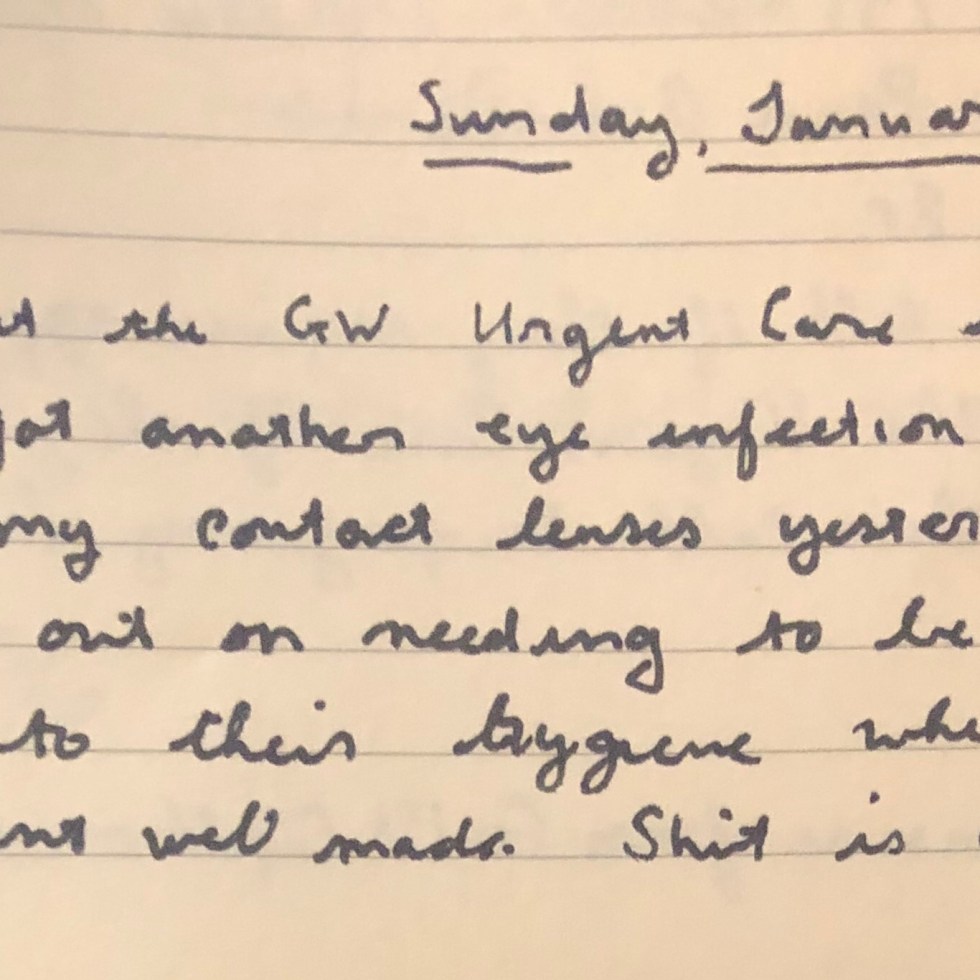 Sunday, Januar
at the GW Urgent Care
got another eye infection
my contact lenses yester
out on needing to be
to their hygiene whe
nt well made. Shit is